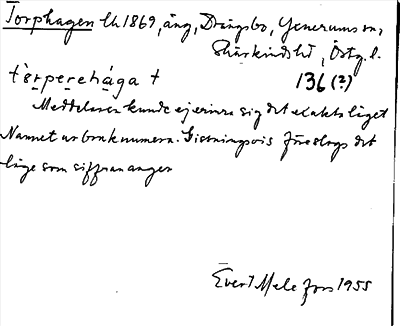 Torphagen LSk 1869, äng, Drängsbo, Yxnerums sn,
Skärkinds hd, Östg. l.
tèrpereha̱ga † 136 (2)
Meddelaren kunde ej erinra sig det exakta läget
Namnet ur bruk numera. Gissningsvis föreslogs det
läge som siffran anger
Evert Melefors 1955